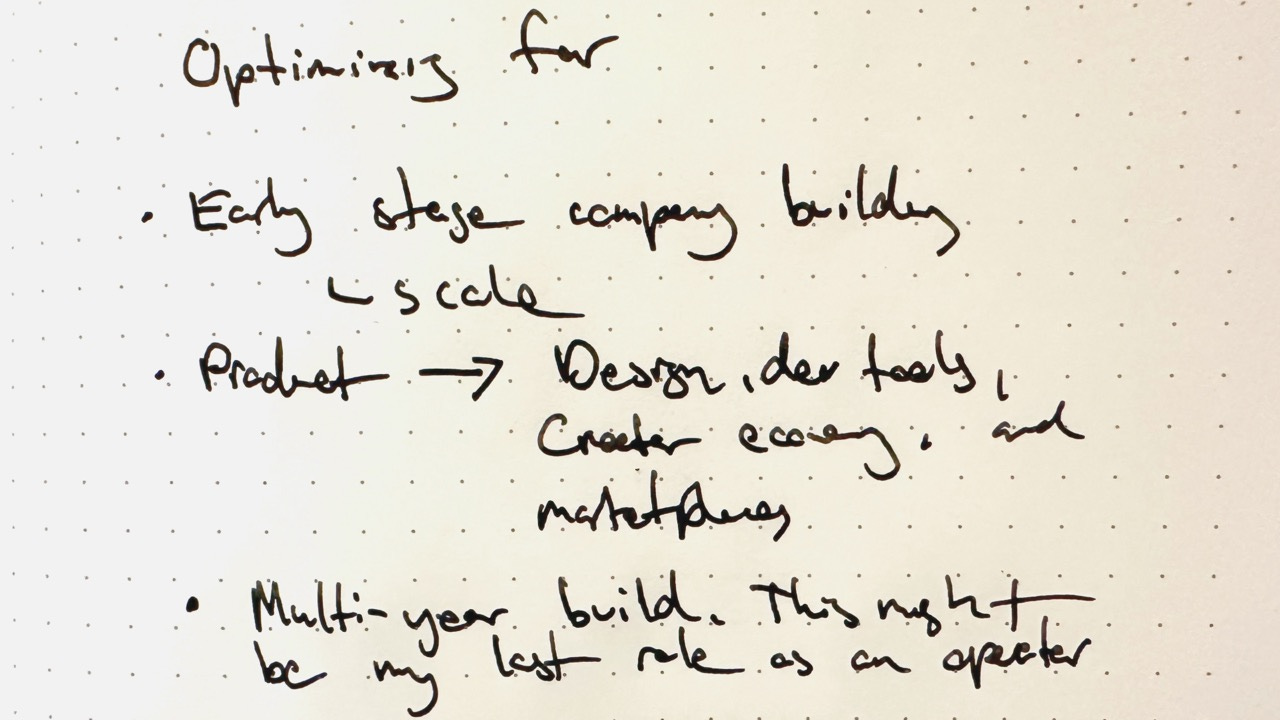 Optimizing for
• Early stage company building
↳ scale
• Product → Design, dev tools,
Creator economy, and
marketplaces
• Multi-year build. This might
be my last role as an operator